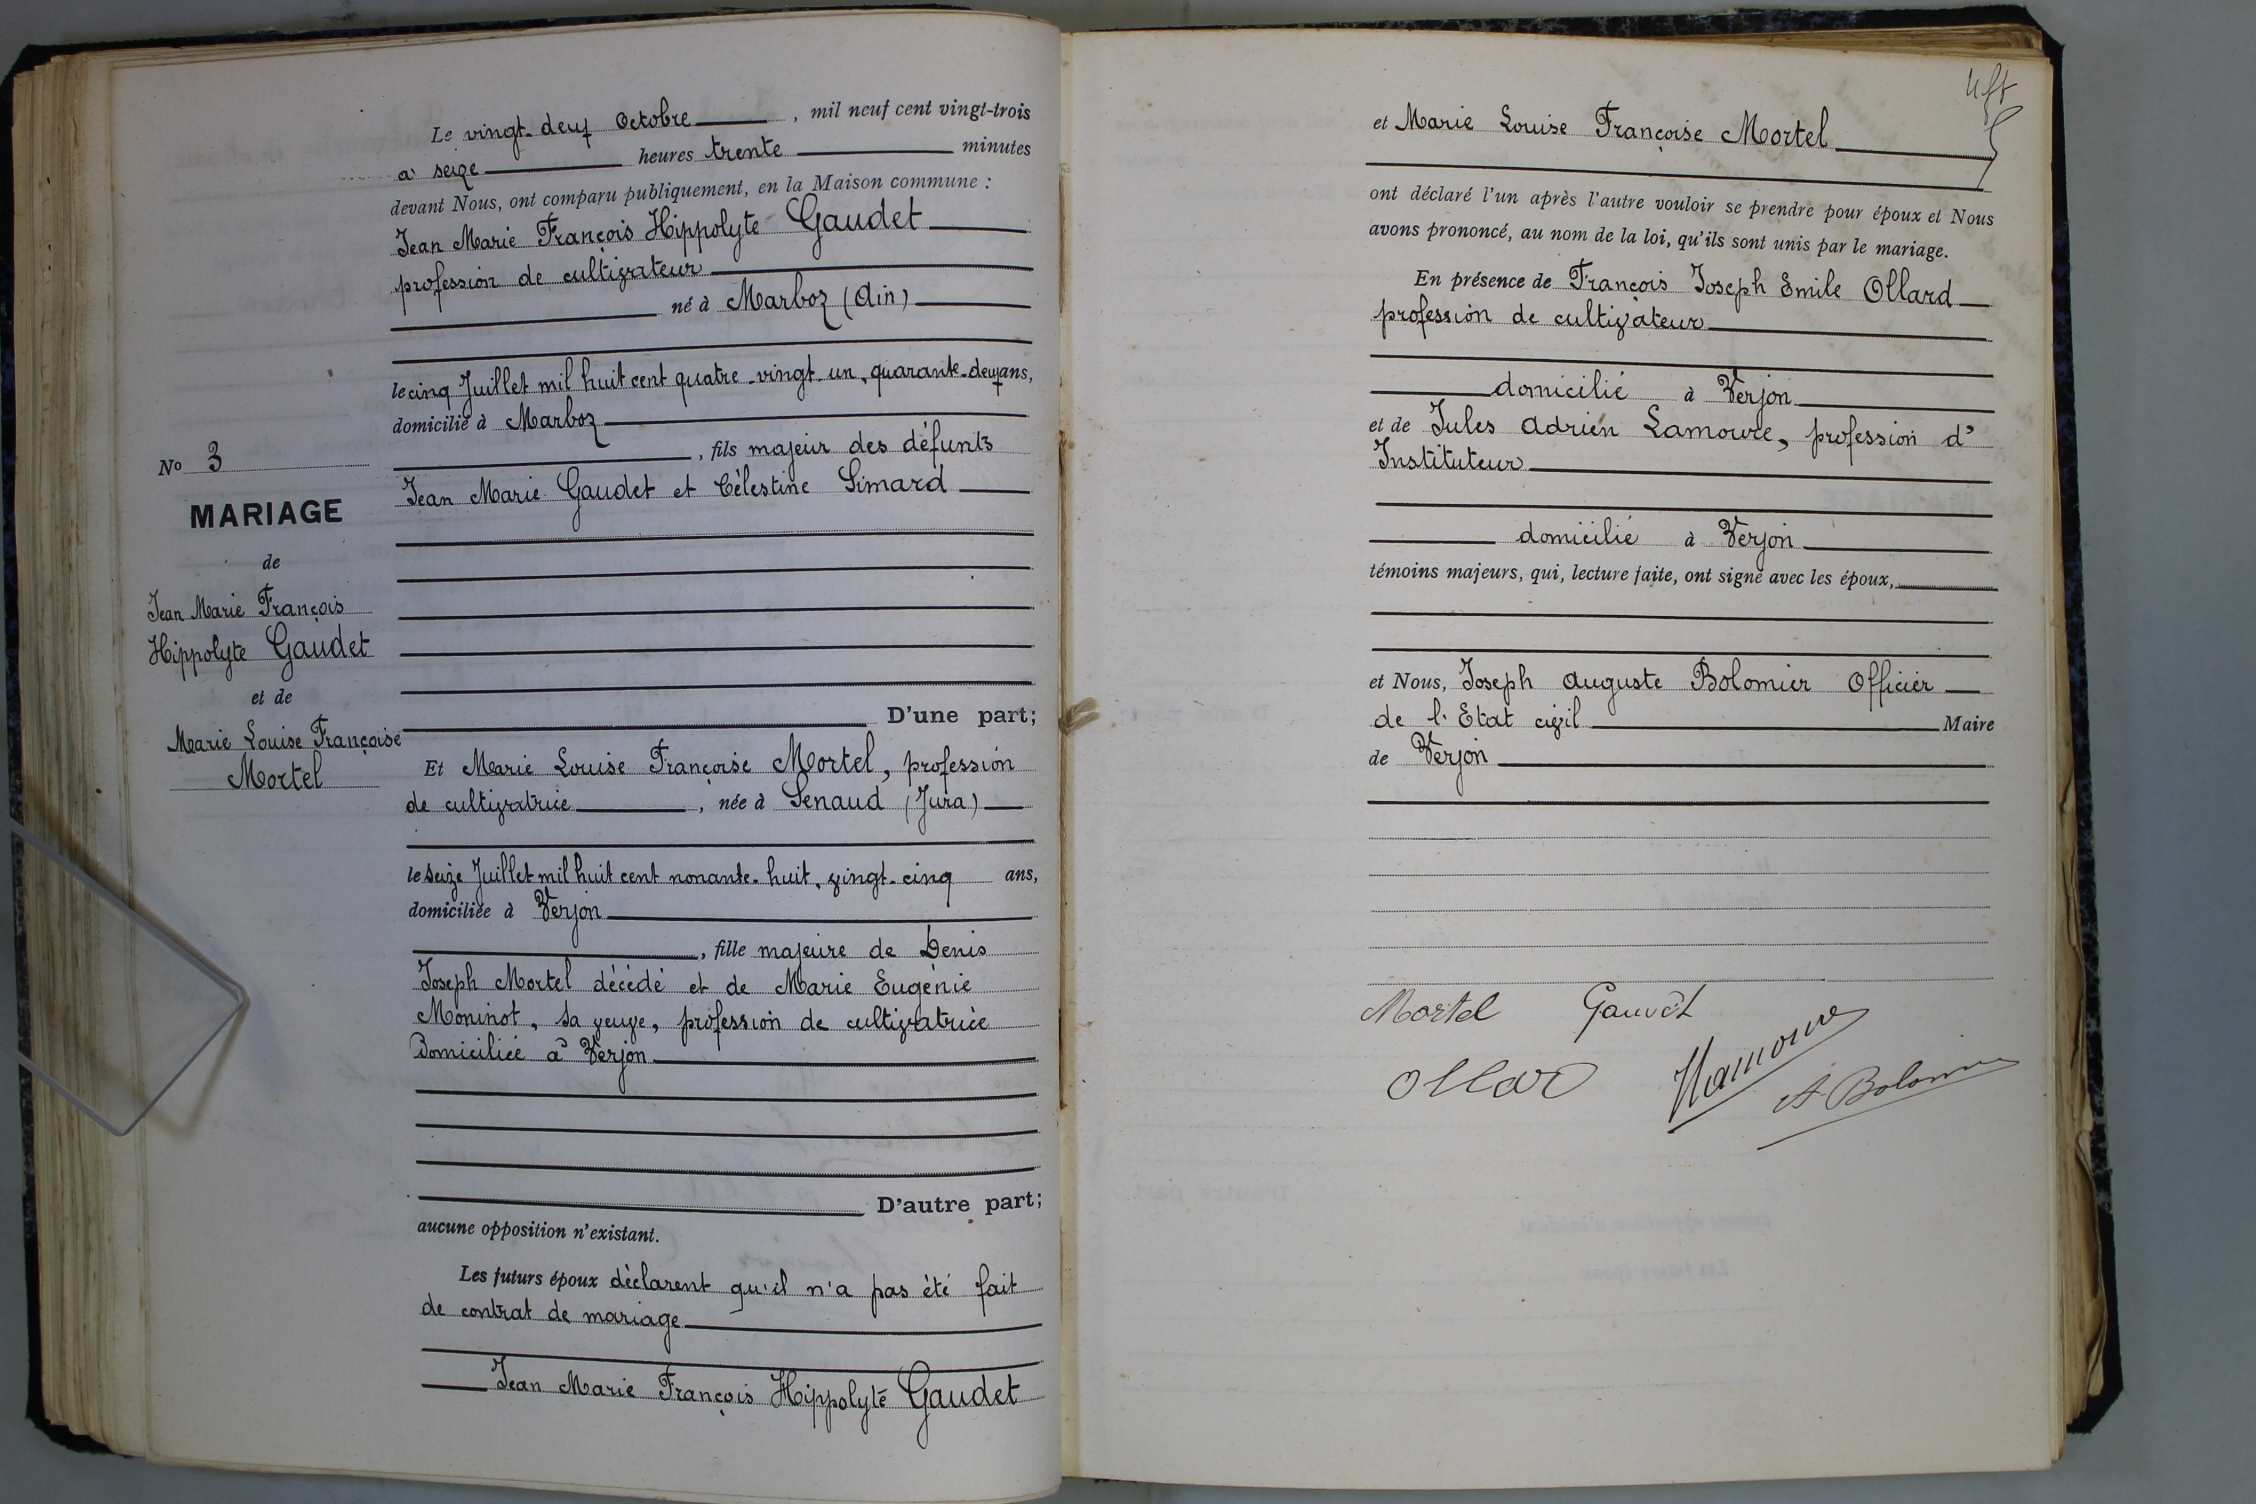 Le vingt-deux Octobre, mil neuf cent vingt-trois
à seize heures trente minutes
devant Nous, ont comparu publiquement, en la Maison commune :
Jean Marie François Hippolyte Gaudet
profession de cultivateur
né à Marboz (Ain)
le cinq Juillet mil huit cent quatre-vingt-un, quarante-deux ans,
domicilié à Marboz
, fils majeur des défunts
Jean Marie Gaudet et Célestine Simard
D'une part;
No 3
MARIAGE
de
Jean Marie François
Hippolyte Gaudet
et de
Marie Louise Françoise
Mortel
Et Marie Louise Françoise Mortel, profession
de cultivatrice, née à Senaud (Jura)
le seize Juillet mil huit cent nonante-huit, vingt-cinq ans,
domiciliée à Verjon
, fille majeure de Denis
Joseph Mortel décédé et de Marie Eugénie
Moninot, sa veuve, profession de cultivatrice
Domiciliée à Verjon
D'autre part;
aucune opposition n'existant.
Les futurs époux déclarent qu'il n'a pas été fait
de contrat de mariage
Jean Marie François Hippolyte Gaudet
et Marie Louise Françoise Mortel
ont déclaré l'un après l'autre vouloir se prendre pour époux et Nous
avons prononcé, au nom de la loi, qu'ils sont unis par le mariage.
En présence de François Joseph Emile Ollard
profession de cultivateur
domicilié à Verjon
et de Jules Adrien Lamoure, profession d'
Instituteur
domicilié à Verjon
témoins majeurs, qui, lecture faite, ont signé avec les époux,
et Nous, Joseph Auguste Bolomier Officier
de l'Etat civil Maire
de Verjon
Mortel Gaudet
Ollard Lamoure
A Bolomier